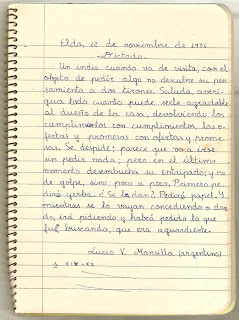 Elda, 12 de noviembre de 1976
-Dictado-
Un indio cuando va de visita, con el
objeto de pedir algo no descubre su pen-
samiento a dos tirones. Saluda, averi-
gua todo cuanto puede serle agradable
al dueño de la casa, devolviendo los
cumplimientos con cumplimientos, las o-
fertas y promesas con ofertas y prome-
sas. Se despide; parece que va a irse
sin pedir nada; pero en el último
momento desembucha su entripado; y no
de golpe, sino poco a poco. Primero pe-
dirá yerba. ¿Se la dan? Pedirá papel. Y
mientras se lo vayan concediendo o dan-
do, irá pidiendo y habrá pedido lo que
fue buscando, que era aguardiente.
Lucio V. Mansilla (argentino)